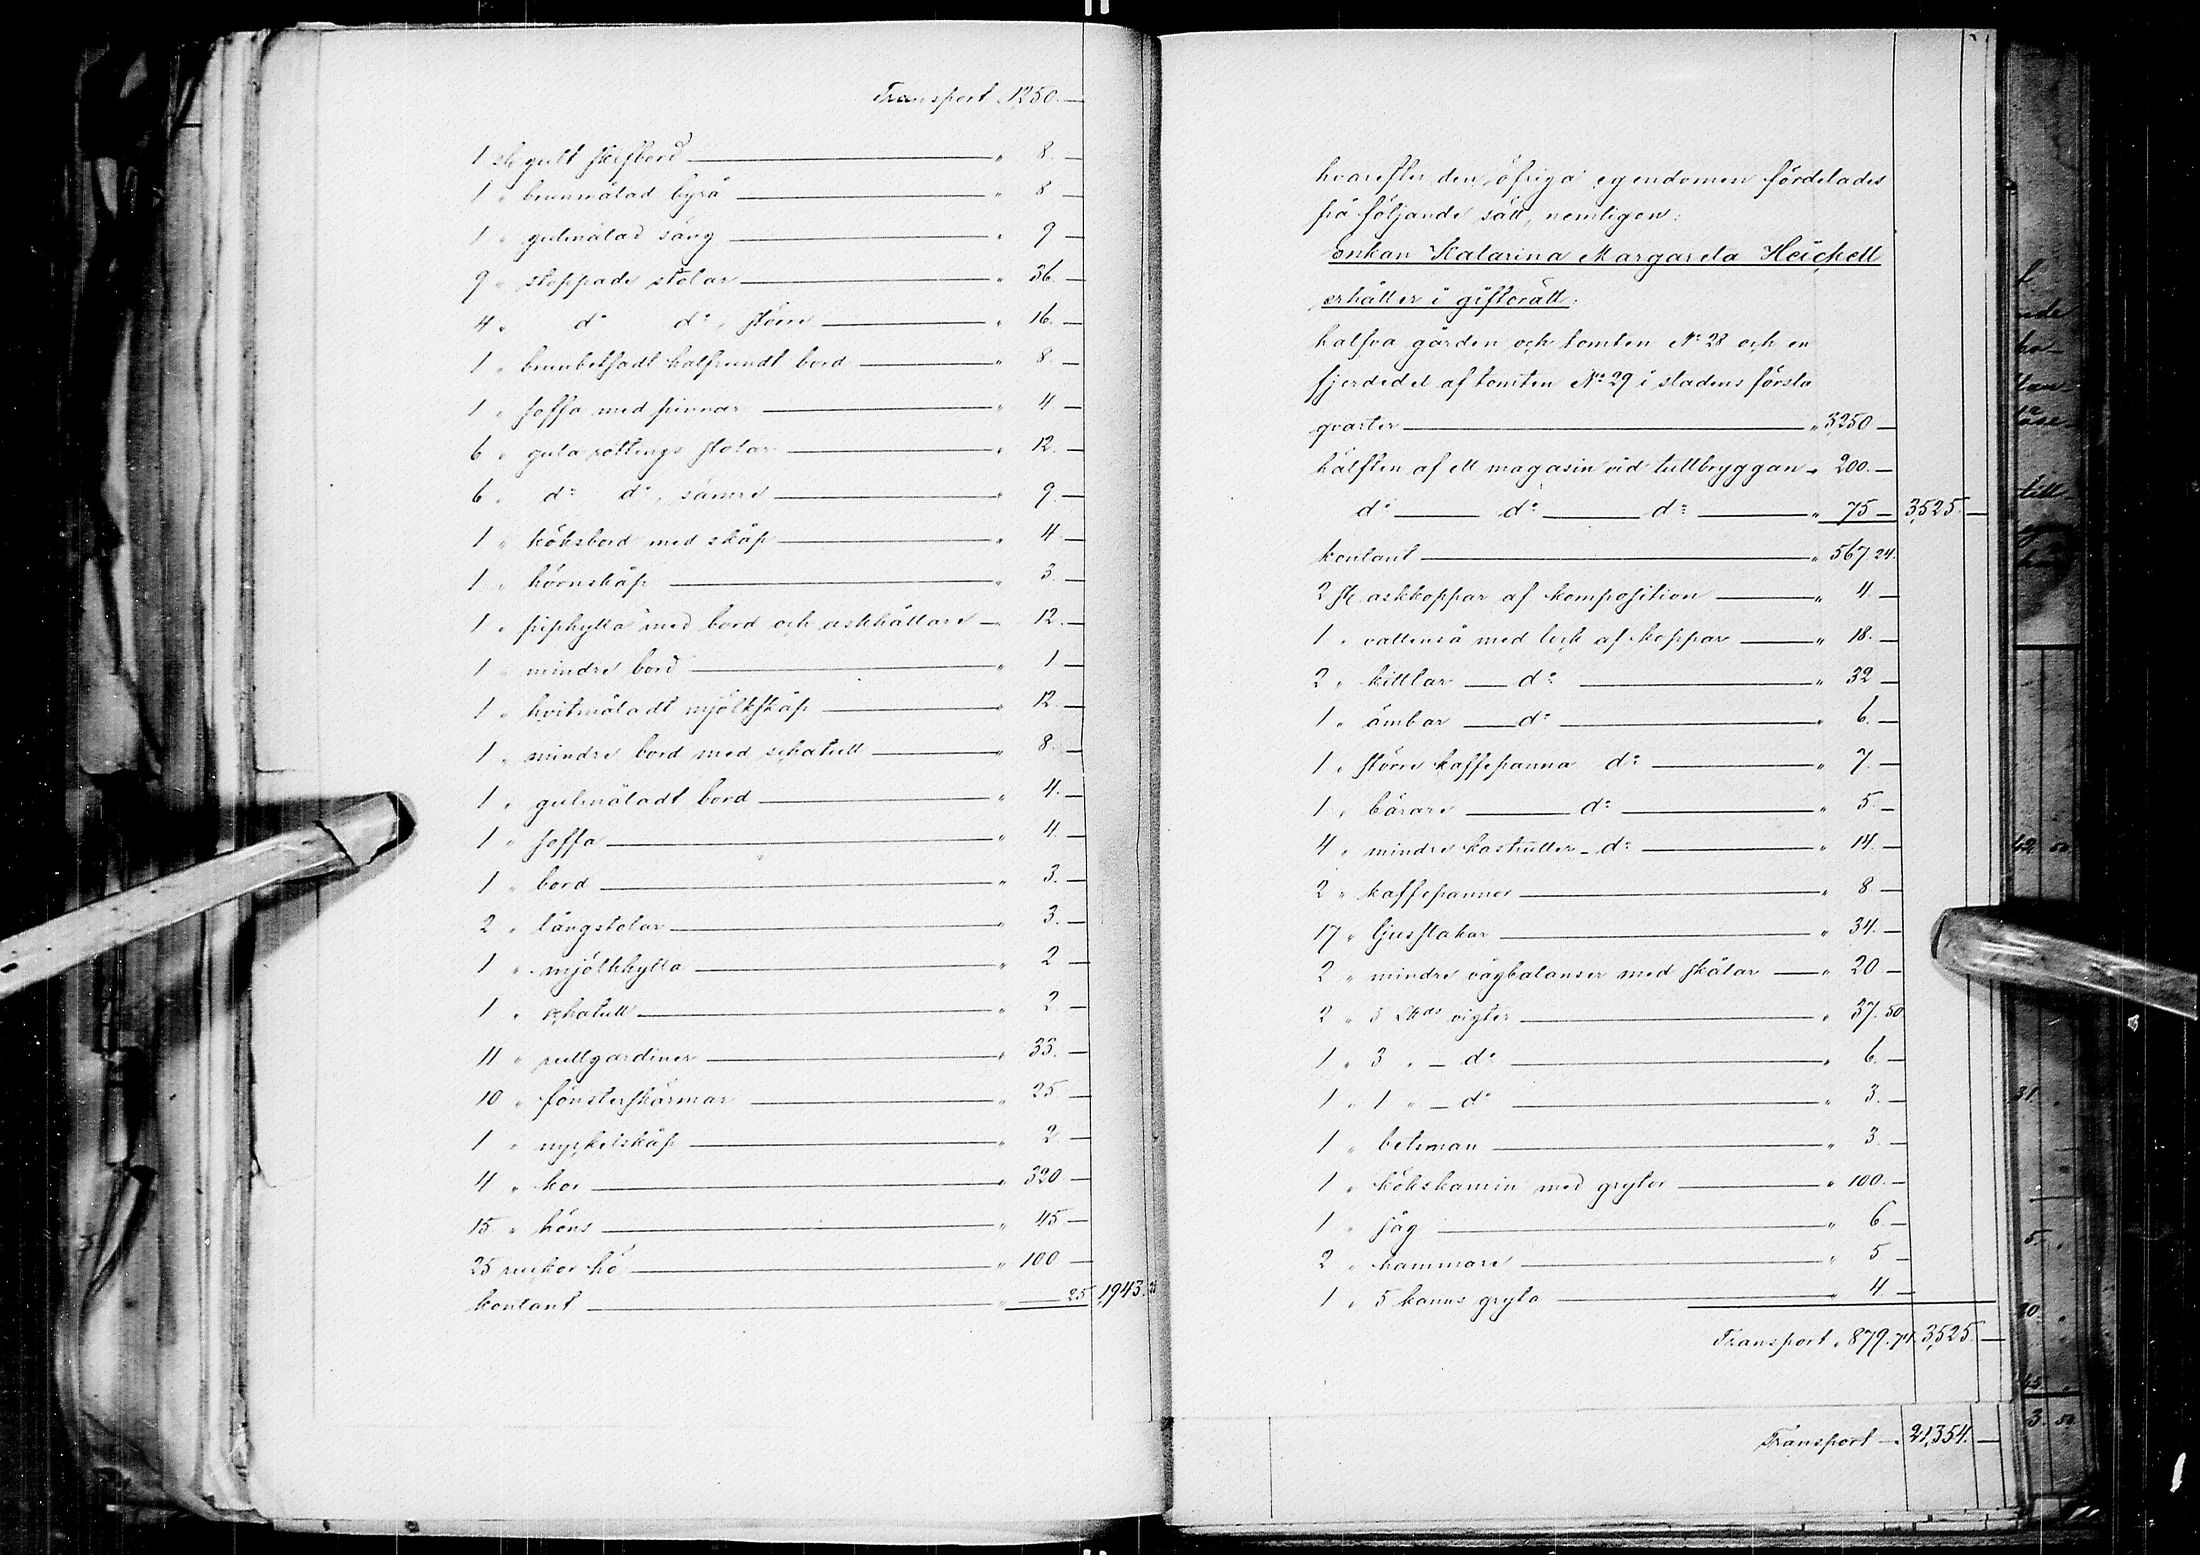 Transport „ 1250. —
1 st. gult skifbord — „ 8. —
1 „ brunmålad byrå — „ 8 —
1 „ gulmålad säng — „ 9 —
9 „ stoppade stolar — „ 36. —
4 „ d:o d:o, större — „ 16. —
1 „ brunbetsadt halfrundt bord — „ 8. —
1 „ soffa med pinnar — „ 4 —
6 „ gula rottings stolar — „ 12. —
6 „ d:o d:o, sämre — „ 9 —
1 „ köksbord med skåp — „ 4. —
1 „ hörnskåp — „ 3. —
1 „ piphylla med bord och askhållare — „ 12. —
1 „ mindre bord — „ 1 —
1 „ hvitmåladt mjölkskåp — „ 12. —
1 „ mindre bord med schatull — „ 8. —
1 „ gulmåladt bord — „ 4. —
1 „ soffa — „ 4. —
1 „ bord — „ 3. —
2 „ långstolar — „ 3. —
1 „ mjölkhylla — „ 2 —
1 „ schatull — „ 2 —
11 „ rullgardiner — „ 33. —
10 „ fönsterskärmar — „ 25 —
1 „ nyckelskåp — „ 2. —
4 „ kor — „ 320 —
15 „ höns — „ 45 —
25 ruckor hö — „ 100 —
kontant — „ — 25 1,943. 25
hvarefter den öfriga egendomen fördelades
på följande sätt, nemligen:
enkan Katarina Margareta Heickell
erhåller i giftorätt:
halfva gården och tomten N:o 28 och en
fjerdedel af tomten N:o 29 i stadens första
qvarter — „ 3250 —
hälften af ett magasin vid tullbryggan „ 200. —
d:o — d:o — d:o — „ 75 — 3,525. —
kontant — „ 567. 24.
2 st. askkoppar af komposition — „ 4 —
1 „ vattenså med lock af koppar — „ 18. —
2 „ kittlar — d:o — „ 32 —
1 „ ämbar — d:o — „ 6. —
1 „ större kaffepanna d:o — „ 7. —
1 „ bärare — d:o — „ 5. —
4 „ mindre kastruller — d:o — „ 14. —
2 „ kaffepannor — „ 8 —
17 „ ljusstakar — „ 34. —
2 „ mindre vågbalanser med skålar — „ 20 —
2 „ 5 vigter — „ 37. 50
1 „ 3 „ — d:o — „ 6. —
1 „ 1 „ — d:o — „ 3. —
1 „ betsman — „ 3. —
1 „ kökskamin med grytor — „ 100. —
1 „ såg — „ 6 —
2 „ hammare — „ 5 —
1 „ 5 kanns gryta — „ 4 —
Transport „ 879. 74. 3,525. —
Transport — „ 21,354. —